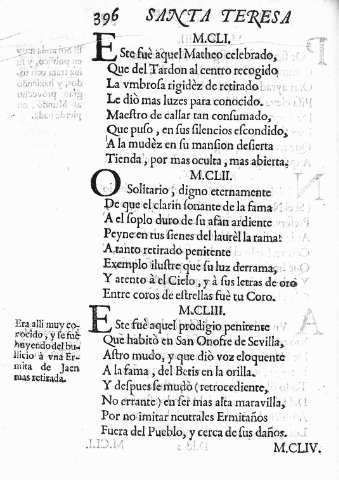 396 SANTA TERESA
M.CLI.
Este fuè aquel Matheo celebrado,
Que del Tardon al centro recogido
La vmbrosa rigidèz de retirado
Le diò mas luzes para conocido.
Maestro de callar tan consumado,
Que puso, en sus silencios escondido,
A la mudèz en su mansion desierta
Tienda, por mas oculta, mas abierta.
M.CLII.
O Solitario, digno eternamente
De que el clarin sonante de la fama
A el soplo duro de su afàn ardiente
Peyne en tus sienes del laurèl la rama!
A tanto retirado penitente
Exemplo ilustre que su luz derrama,
Y atento à el Cielo, y à sus letras de oro
Entre coros de estrellas fuè tu Coro.
M.CLIII.
Este fuè aquel prodigio penitente
Que habitò en San Onofre de Sevilla,
Astro mudo, y que diò voz eloquente
A la fama, del Betis en la orilla.
Y despues se mudò (retrocediente,
No errante) en ser mas alta maravilla,
Por no imitar neutrales Ermitaños
Fuera del Pueblo, y cerca de sus daños.
Era alli muy co-
nocido, y se fuè
huyendo del bu-
llicio à vna Er-
mita de Jaen
mas retirada.
M.CLIV.